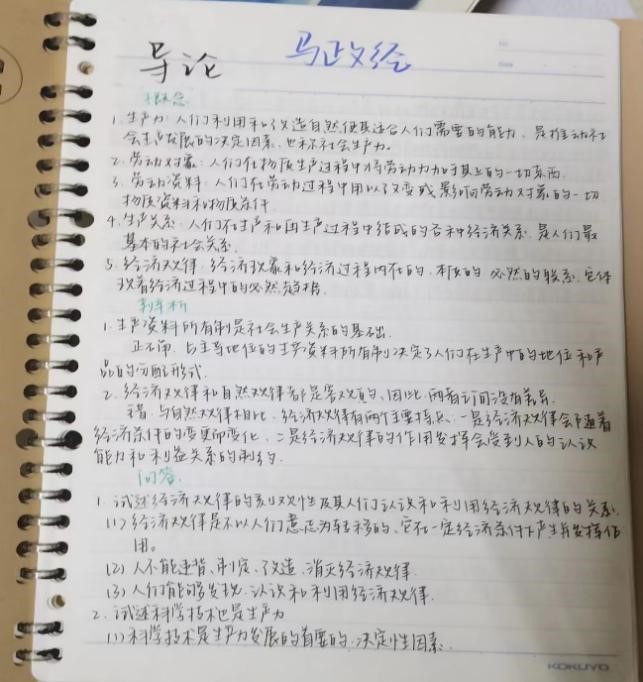 马政经
导论
概念
1. 生产力: 人们利用和改造自然使其适合人们需要的能力, 是推动社
会生产发展的决定因素, 也称社会生产力.
2. 劳动对象: 人们在物质生产过程中将劳动力加于其上的一切东西.
3. 劳动资料: 人们在劳动过程中用以改变或影响劳动对象的一切
物质资料和物质条件.
4. 生产关系: 人们在生产和再生产过程中结成的各种经济关系, 是人们最
基本的社会关系.
5. 经济规律: 经济现象和经济过程内在的, 本质的 必然的联系, 它体
现着经济过程中的必然趋势.
判断析
1. 生产资料所有制是社会生产关系的基础.
正确, 占主导地位的生产资料所有制决定了人们在生产中的地位和产
品的分配形式.
2. 经济规律和自然规律都是客观的, 因此, 两者之间没有差异.
错, 与自然规律相比, 经济规律有两个主要特点: 一是经济规律会随着
经济条件的变更而变化, 二是经济规律的作用发挥会受到人的认识
能力和利益关系的制约.
问答
1. 试述经济规律的客观性及其人们认识和利用经济规律的关系.
(1) 经济规律是不以人们意志为转移的, 它在一定经济条件下产生并发挥作
用.
(2) 人不能违背、制定、改造、消灭经济规律.
(3) 人们能够发现、认识和利用经济规律.
2. 试述科学技术也是生产力
(1) 科学技术是生产力发展的首要的、决定性因素.
KOKUYO